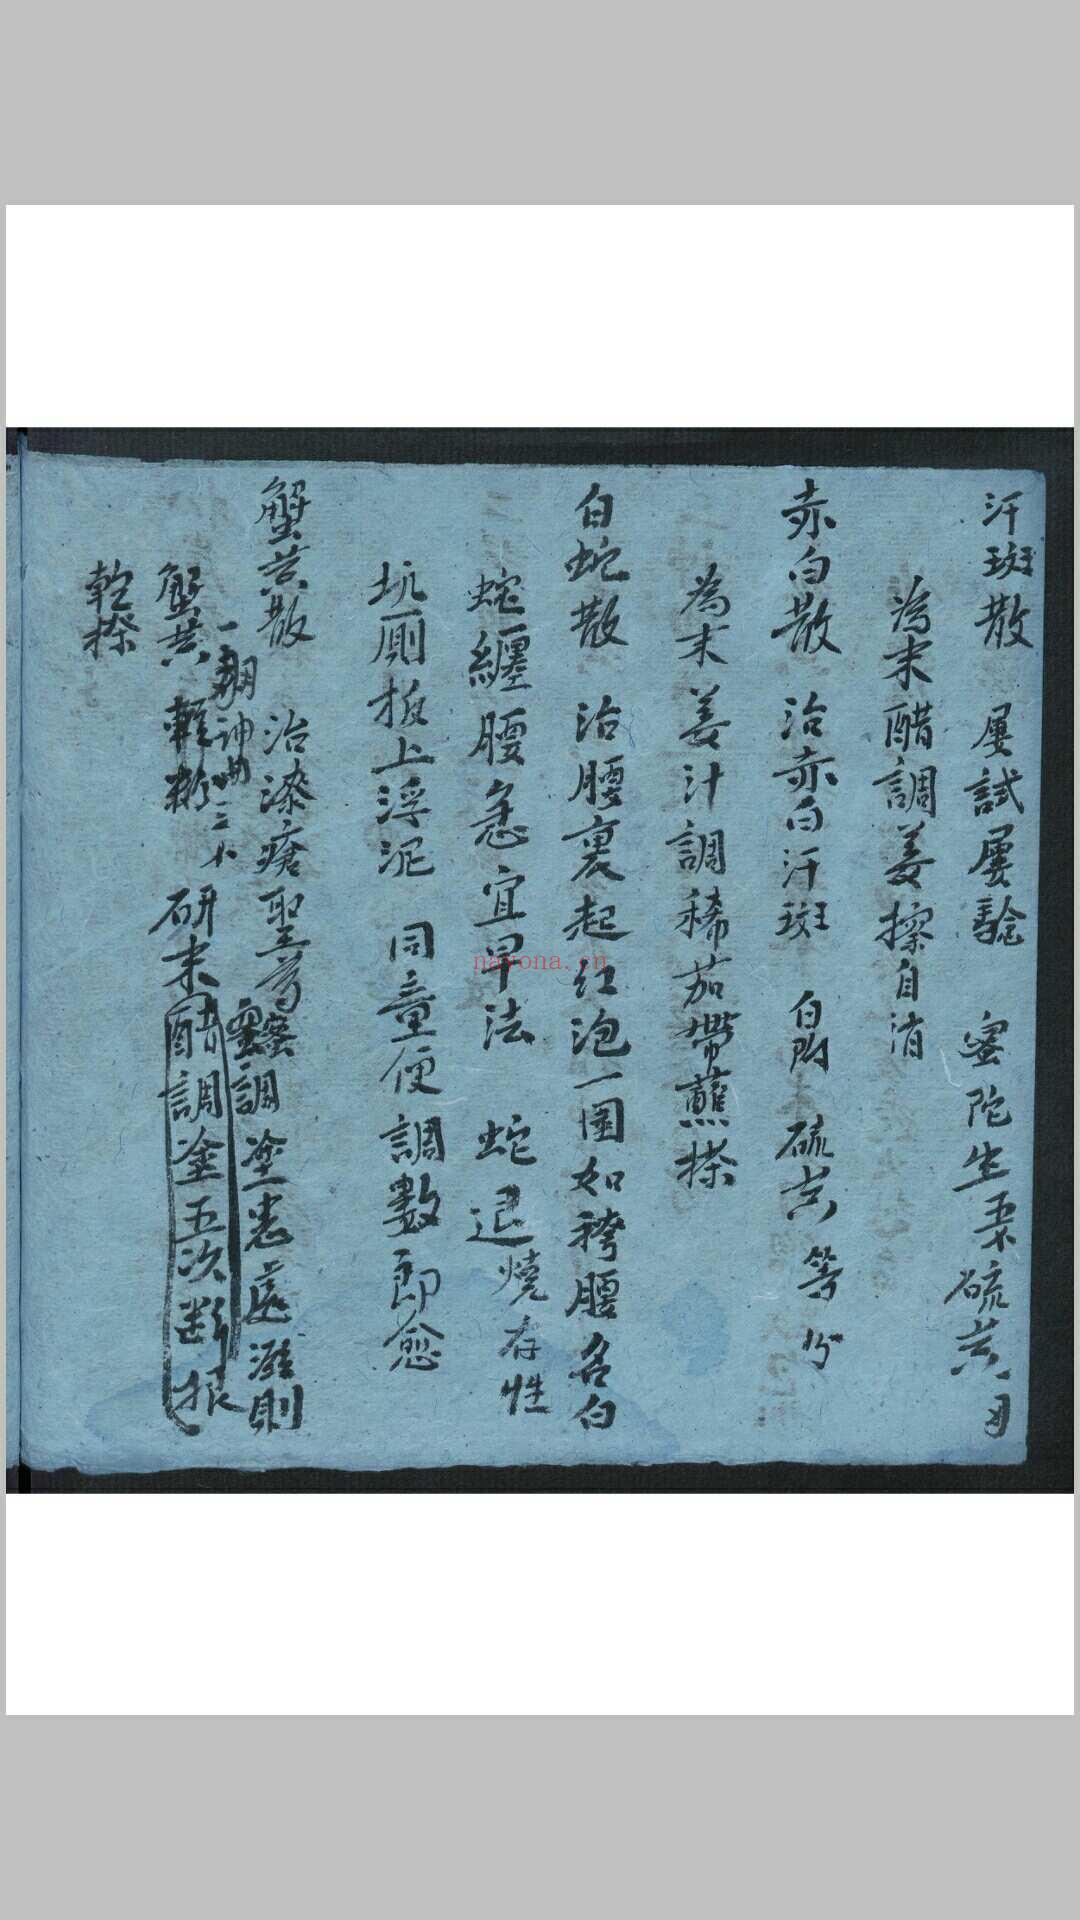 汗斑散　屢試屢驗　蜜陀生　硫黄
為末醋調姜擦自消
赤白散　治赤白汗斑　白附　硫黄　等分
為末姜汁調稀茄帶蘸搽
白蛇散　治腰裏起紅泡一圍如袴腰名白
蛇纏腰急宜早法　蛇退燒存性
坑厠板上浮泥　同童便調敷即愈
蟹黄散　治漆瘡聖藥
蜜調塗患處濕則
蟹黄　研末醋調塗五次断根
乾搽
nayona.cn